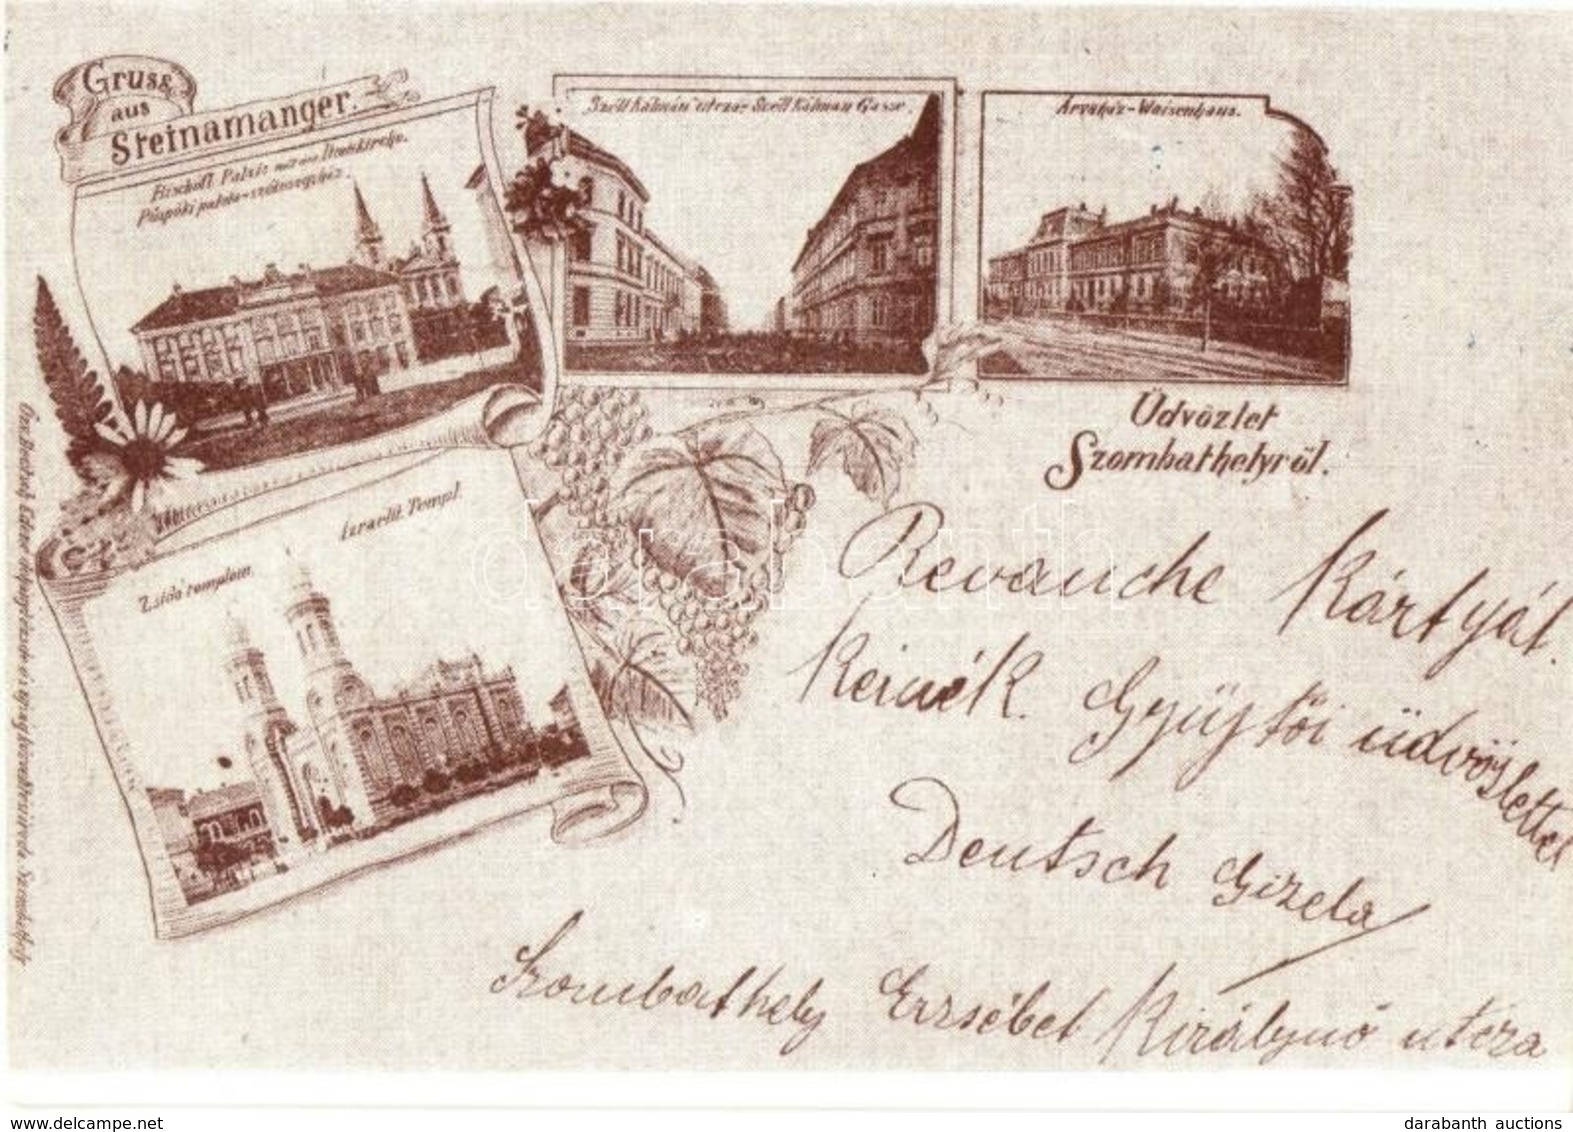 Gruss
aus
Steinamanger.
Bischöfl. Palais mit der Domkirche.
Püspöki palota-székesegyház.
Széll Kálmán utcza-Széll Kálmán Gasse.
Árvaház-Waisenhaus.
Üdvözlet
Szombathelyről.
Izraelit. Templ.
Zsidó templom.
Revanche Kártyát
Kérnék. Gyüjtői üdvözlettel
Deutsch Gizela
Szombathely Erzsébet Királynő utcza
Szombathely.
darabanth
Delcampe.net
darabanth auctions